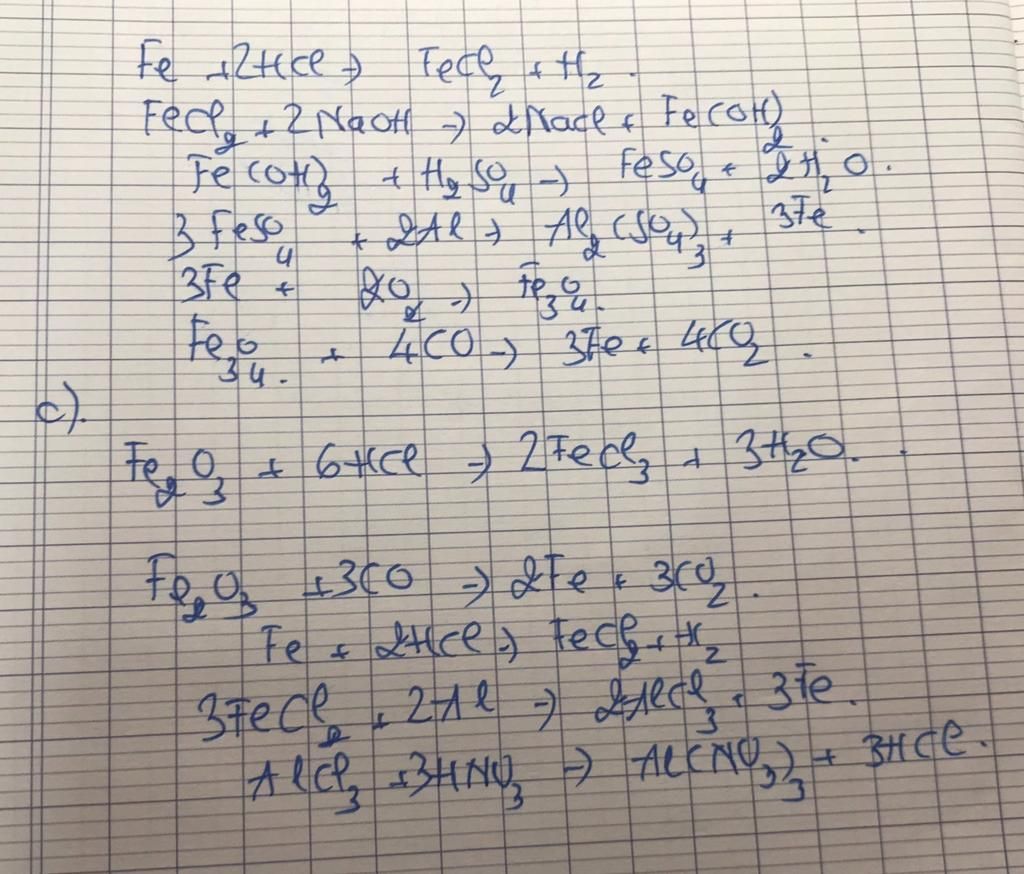 Fe + 2HCl → FeCl₂ + H₂.
FeCl₂ + 2NaOH → 2NaCl + Fe(OH)₂.
Fe(OH)₂ + H₂SO₄ → FeSO₄ + 2H₂O.
3FeSO₄ + 2Al → Al₂(SO₄)₃ + 3Fe.
3Fe + 2O₂ → Fe₃O₄.
Fe₃O₄. + 4CO → 3Fe + 4CO₂.
c).
Fe₂O₃ + 6HCl → 2FeCl₃ + 3H₂O.
Fe₂O₃ + 3CO → 2Fe + 3CO₂.
Fe + 2HCl → FeCl₂ + H₂
3FeCl₂ + 2Al → 2AlCl₃ + 3Fe.
AlCl₃ + 3HNO₃ → Al(NO₃)₃ + 3HCl.